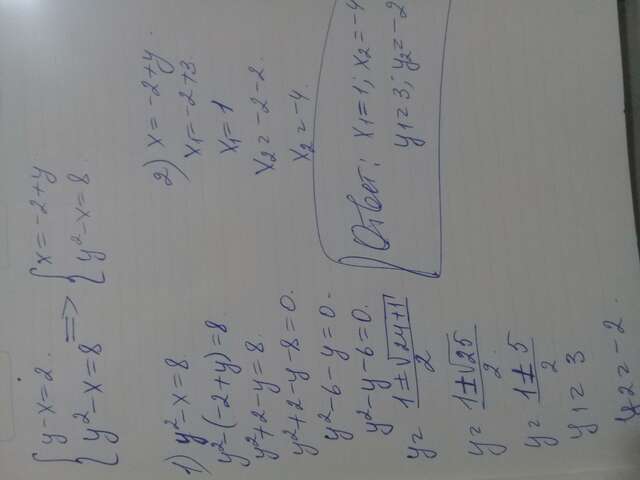 { y-x=2.
{ y²-x=8 => { x=-2+y
{ y²-x=8.
1) y²-x=8
y²-(-2+y)=8.
y²+2-y=8.
y²+2-y-8=0.
y²-6-y=0.
y²-y-6=0.
y= 1±√24+1 / 2
y= 1±√25 / 2.
y= 1±5 / 2
y1= 3
y2= -2.
2) x=-2+y.
x1=-2+3.
x1=1
x2=-2-2.
x2=-4.
Ответ: x1=1; x2=-4
y1=3; y2=-2